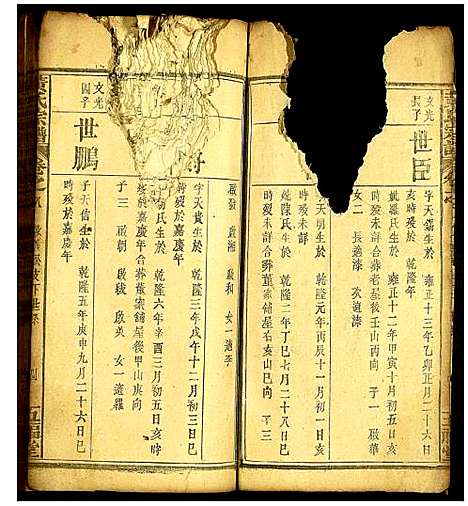 文光
長子
世臣
字天錫生於 雍正十三年乙卯正月二十六日
亥時歿於 乾隆年
氏生於 雍正十二年甲寅十月初五日亥
時歿未詳合葬老屋後壬山丙向 子一 啟華
女二 長適漆 次適漆
字天明生於 乾隆元年丙辰十一月初八日
時歿未詳
陳氏生於 乾隆二年丁巳七月二十八日
時歿未詳合葬董家舖屋右亥山巳向 子三
啟發 啟湘 啟和 女一適李
字天貴生於 乾隆三年戊午十二月初三日巳
時歿於嘉慶年
氏生於 乾隆六年辛酉三月初五日亥時
歿於嘉慶年合葬董家舖屋後甲山庚向
子三 啟朝 啟秡 啟英 女一適羅
文光
四子
世鵬
字天信生於 乾隆五年庚申九月二十六日巳
時歿於嘉慶年
黃氏宗譜
五福堂